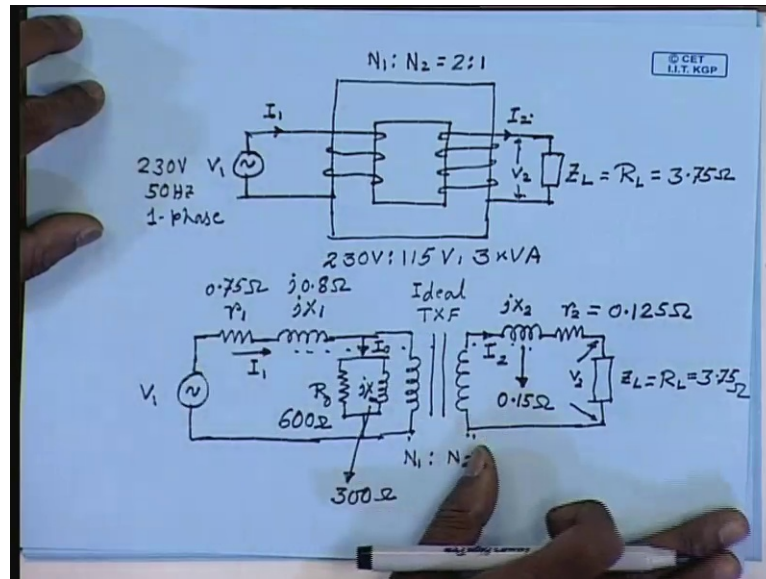 N₁ : N₂ = 2 : 1
© CET
I.I.T. KGP
I₁
I₂
230V V₁
50Hz
1-phase
V₂
Z_L = R_L = 3.75Ω
230V : 115V, 3KVA
0.75Ω j0.8Ω
r₁ jx₁
Ideal
TXF
jx₂ r₂ = 0.125Ω
I₁ I₀ I₂
V₁
R₀ jx
600Ω
0.15Ω
V₂ Z_L = R_L = 3.75Ω
N₁ : N₂
300Ω